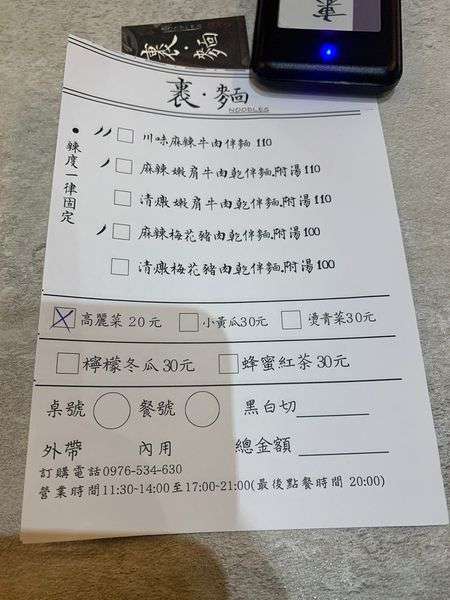 裹·麵
裹·麵
NOODLES
●辣度一律固定
川味麻辣牛肉伴麵 110
麻辣嫩肩牛肉乾伴麵.附湯110
清燉嫩肩牛肉乾伴麵.附湯110
麻辣梅花豬肉乾伴麵.附湯100
清燉梅花豬肉乾伴麵.附湯100
高麗菜20元 小黃瓜30元 燙青菜30元
檸檬冬瓜30元 蜂蜜紅茶30元
桌號 餐號 黑白切
外帶 內用 總金額
訂購電話0976-534-630
營業時間11:30-14:00至17:00-21:00(最後點餐時間 20:00)